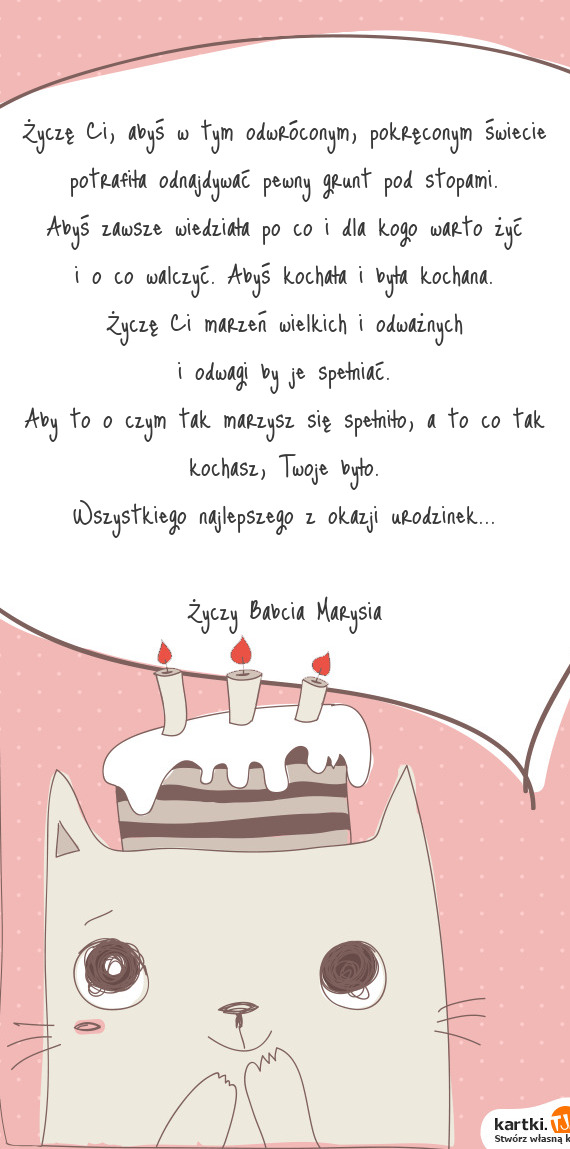 Życzę Ci, abyś w tym odwróconym, pokręconym świecie
potrafiła odnajdywać pewny grunt pod stopami.
Abyś zawsze wiedziała po co i dla kogo warto żyć
i o co walczyć. Abyś kochała i była kochana.
Życzę Ci marzeń wielkich i odważnych
i odwagi by je spełniać.
Aby to o czym tak marzysz się spełniło, a to co tak
kochasz, Twoje było.
Wszystkiego najlepszego z okazji urodzinek...
Życzy Babcia Marysia
kartki.TJ
Stwórz własną k